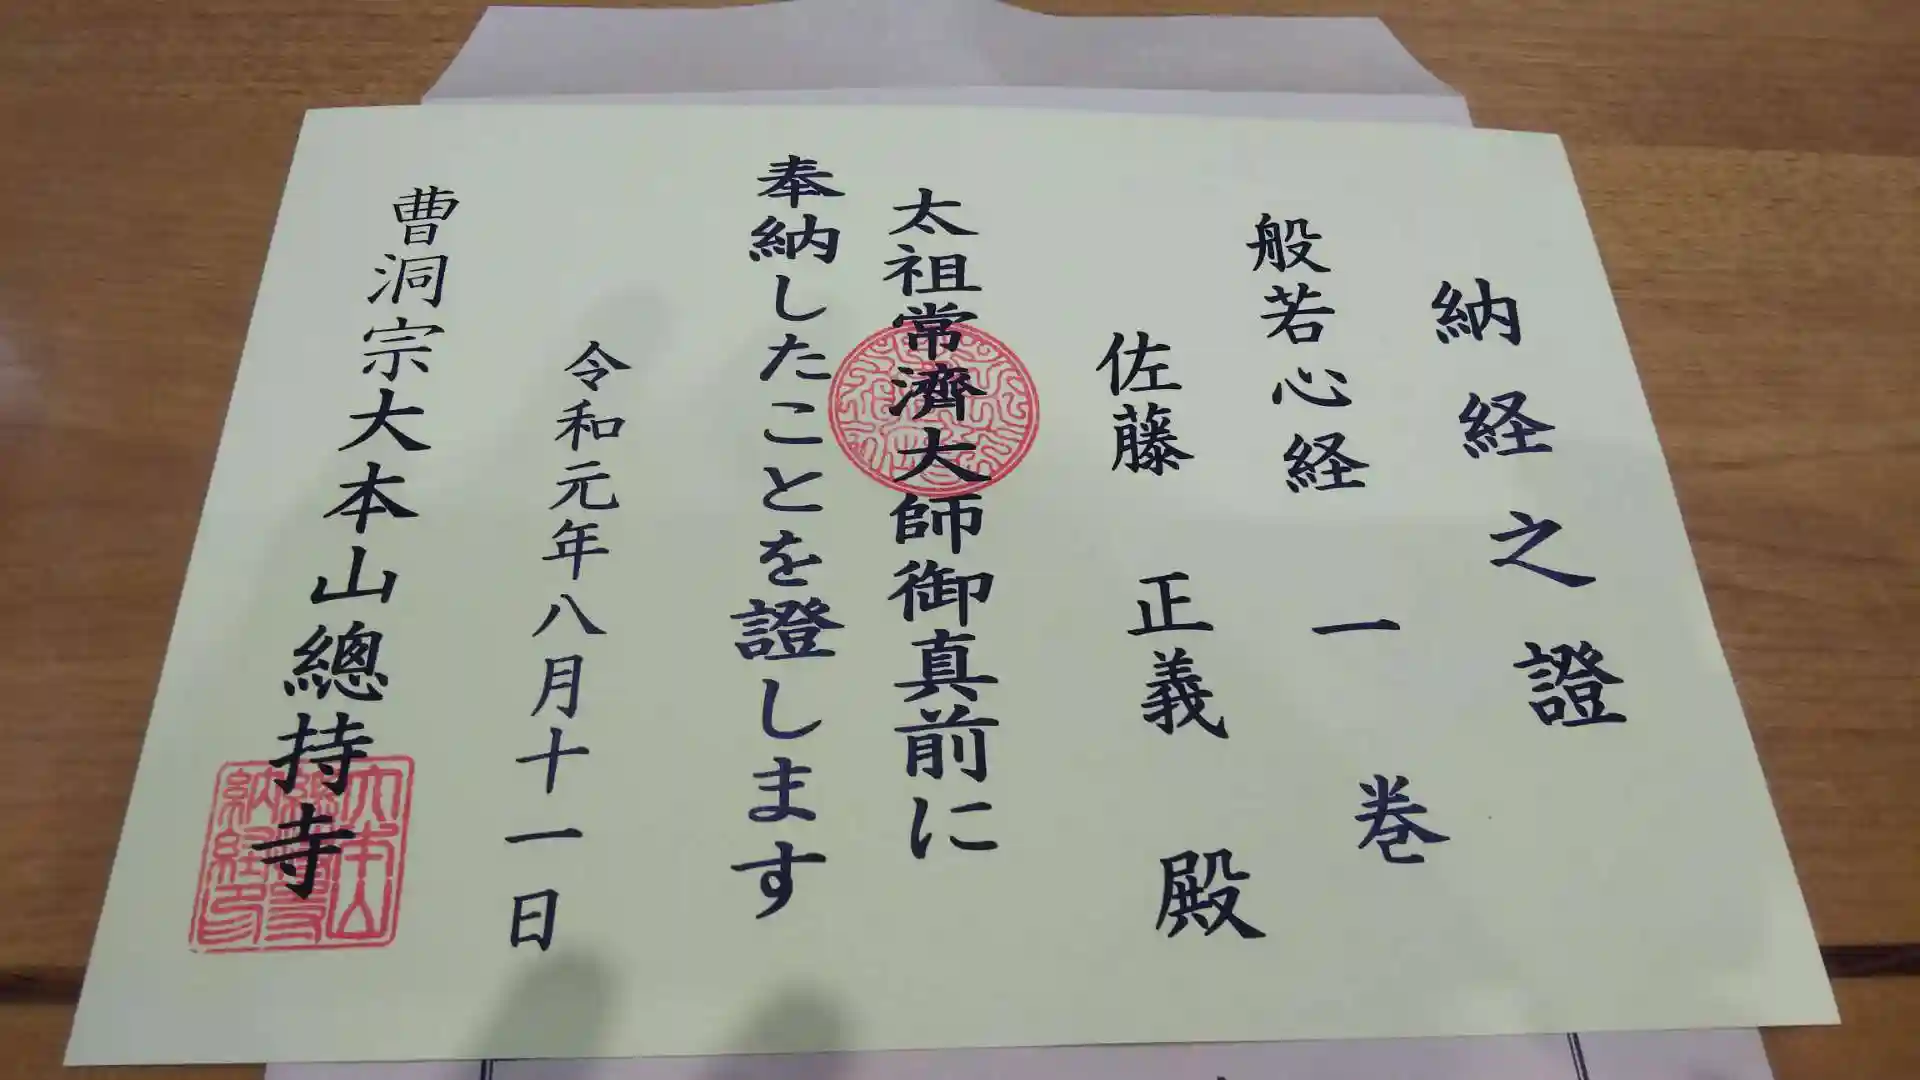 納経之證
般若心経 一巻
佐藤 正義 殿
太祖常濟大師御真前に
奉納したことを證します
令和元年八月十一日
曹洞宗大本山總持寺
大本山
總持寺
納経印